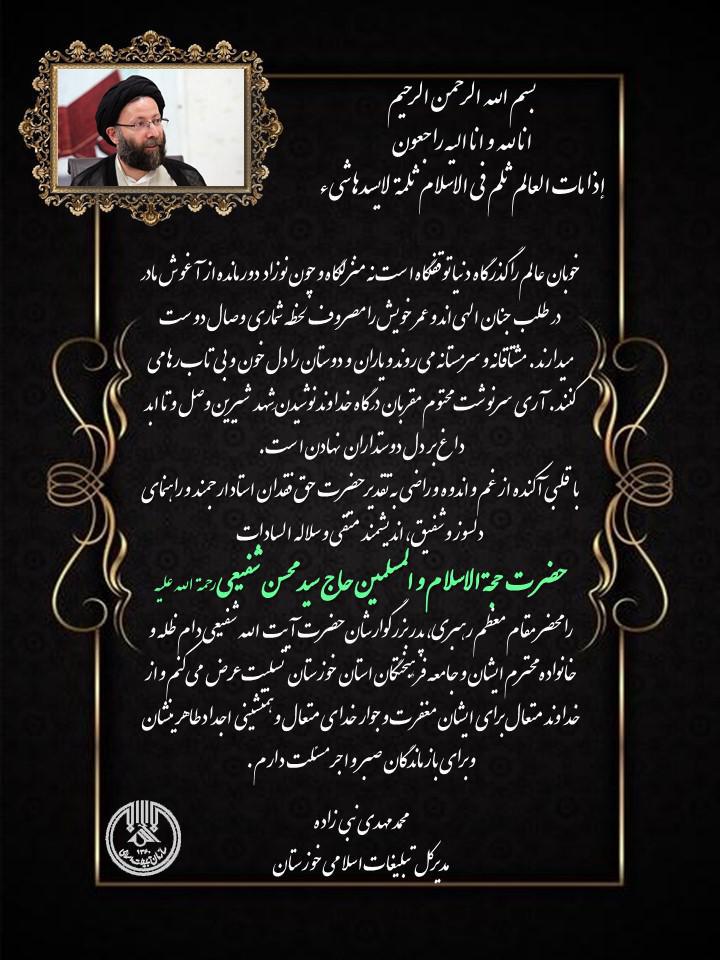 بسم الله الرحمن الرحیم
انا لله و انا الیه راجعون
إذا مات العالم ثلم فی الاسلام ثلمة لایسدها شیء
خوبان عالم را گذرگاه دنیا توقفگاه است نه منزلگاه و چون نوزاد دورمانده از آغوش مادر
در طلب جنان الهی اند و عمر خویش را مصروف لحظه شماری وصال دوست
میدارند. مشتاقانه و سرمستانه می روند و یاران و دوستان را دل خون و بی تاب رها می
کنند. آری سرنوشت محتوم مقربان درگاه خداوند نوشیدن شهد شیرین وصل و تا ابد
داغ بر دل دوستداران نهادن است.
با قلبی آکنده از غم و اندوه و راضی به تقدیر حضرت حق فقدان استاد ارجمند و راهنمای
دلسوز و شفیق، اندیشمند متقی و سلاله السادات
حضرت حجة الاسلام و المسلمین حاج سید محسن شفیعی رحمة الله علیه
را محضر مقام معظم رهبری، پدر بزرگوارشان حضرت آیت الله شفیعی دام ظله و
خانواده محترم ایشان و جامعه فرهیختگان استان خوزستان تسلیت عرض می کنم و از
خداوند متعال برای ایشان مغفرت و جوار خدای متعال و همنشینی اجداد طاهرینشان
و برای بازماندگان صبر و اجر مسئلت دارم.
محمد مهدی نبی زاده
مدیر کل تبلیغات اسلامی خوزستان
۱۳۶۰
سازمان تبلیغات اسلامی